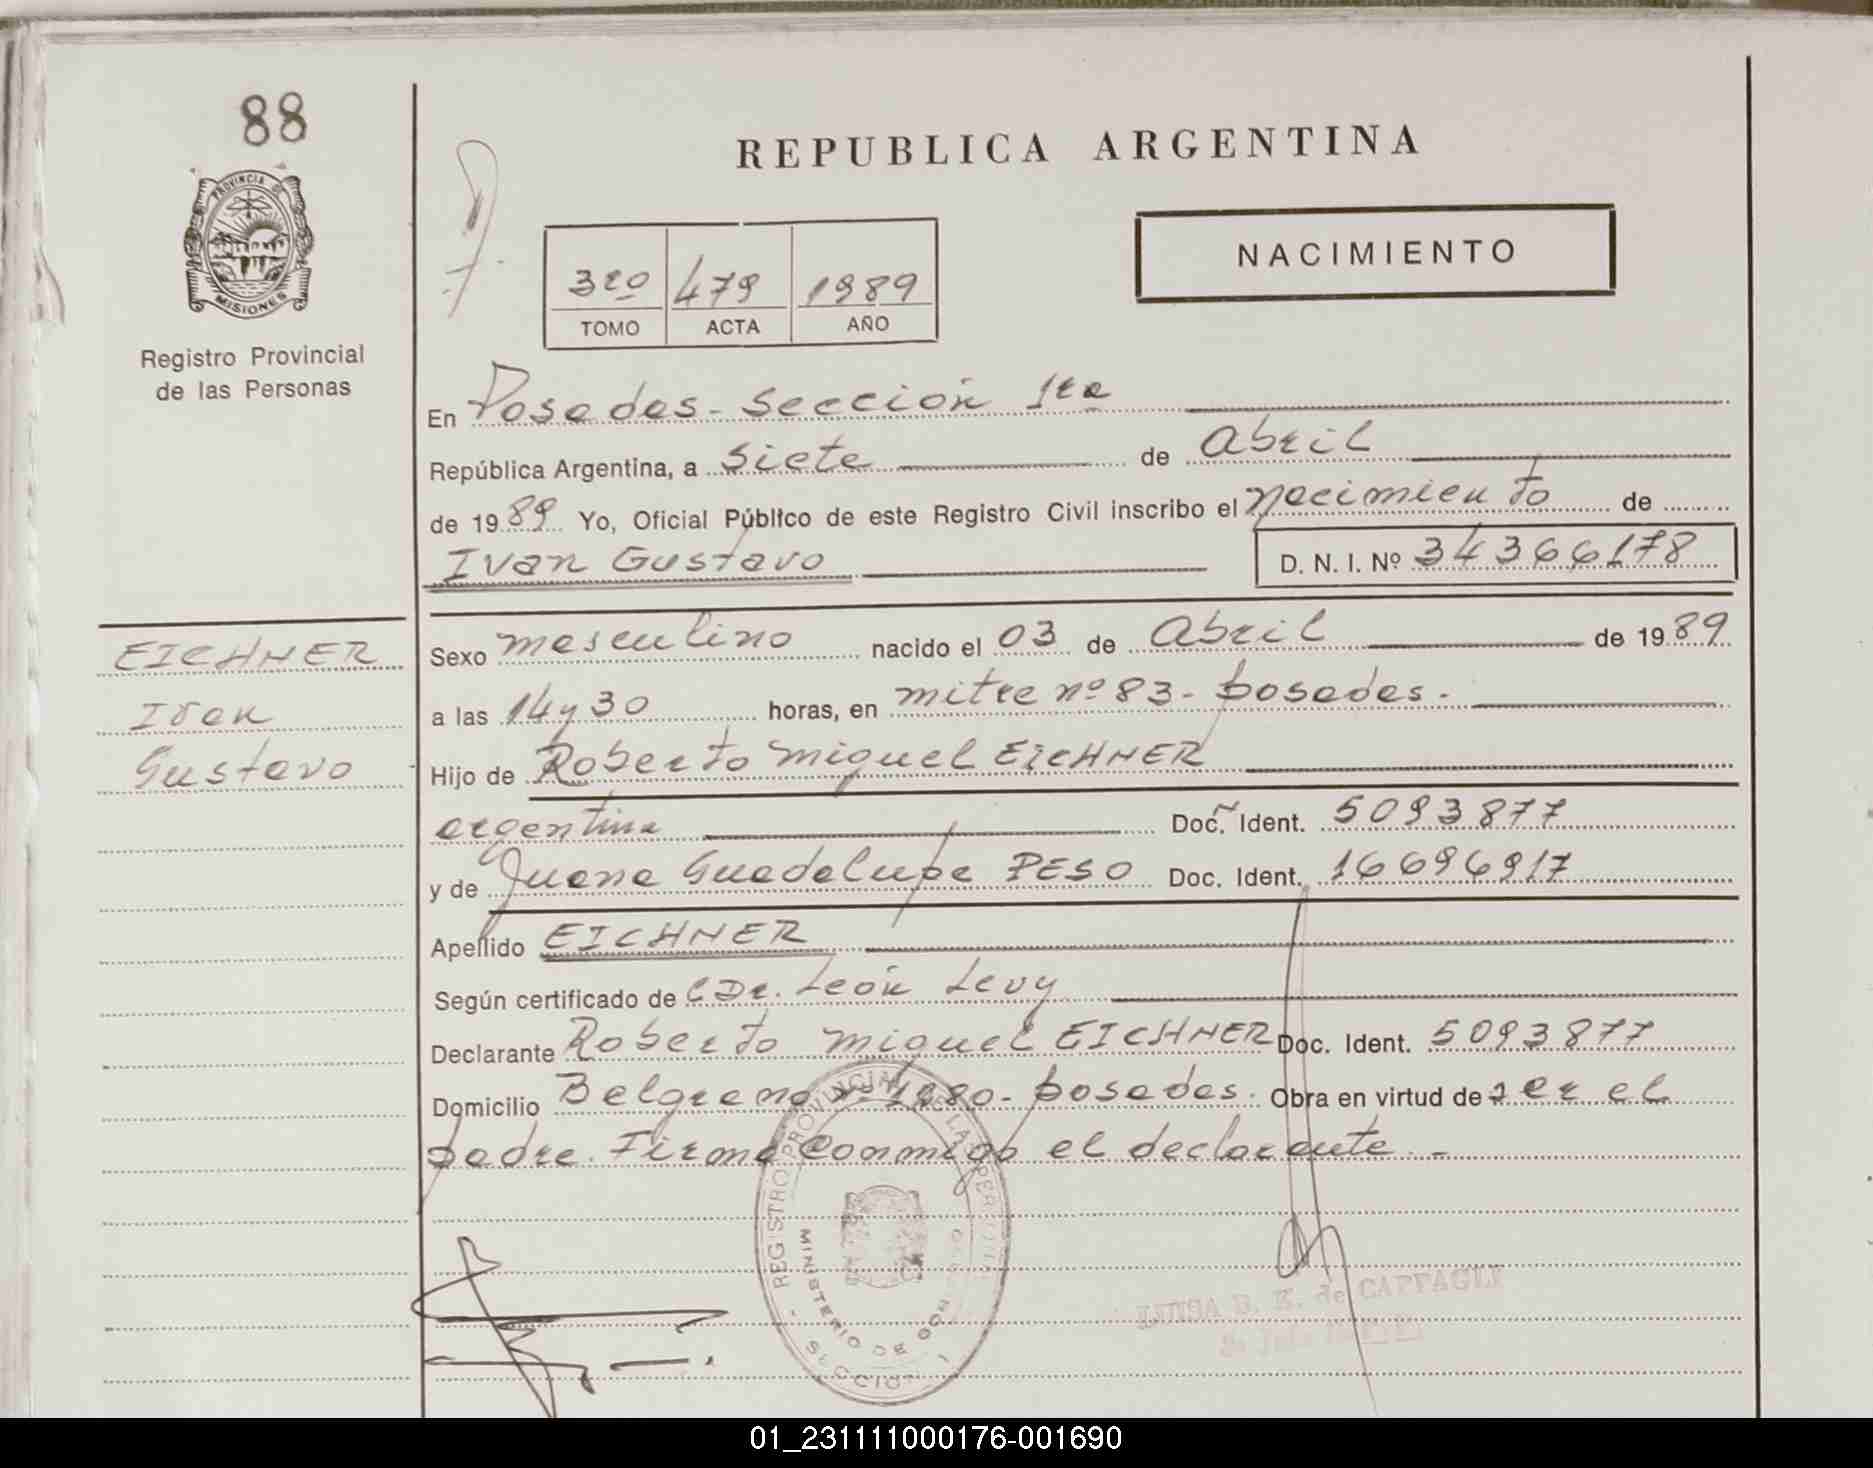 88
REPUBLICA ARGENTINA
PROVINCIA DE
MISIONES
Registro Provincial
de las Personas
NACIMIENTO
3ro 479 1989
TOMO ACTA AÑO
En Posadas - Sección 1ra
República Argentina, a siete de Abril
de 1989 Yo, Oficial Público de este Registro Civil inscribo el nacimiento de
Ivan Gustavo D. N. I. Nº 34366178
EICHNER
Ivan
Gustavo
Sexo masculino nacido el 03 de Abril de 1989
a las 14 y 30 horas, en mitre nº 83 - posadas.
Hijo de Roberto Miguel EICHNER
argentina Doc. Ident. 5093877
y de Juana Guadalupe PESO Doc. Ident. 16696917
Apellido EICHNER
Según certificado de Dr. León Levy
Declarante Roberto Miguel EICHNER Doc. Ident. 5093877
Domicilio Belgrano nº 1980 - posadas. Obra en virtud de ser el
padre. Firma conmigo el declarante. -
REGISTRO PROVINCIAL DE LAS PER
MINISTERIO DE GOBIERNO
SECCION 1
LUISA B. K. de CAPPAGLI
01_231111000176-001690